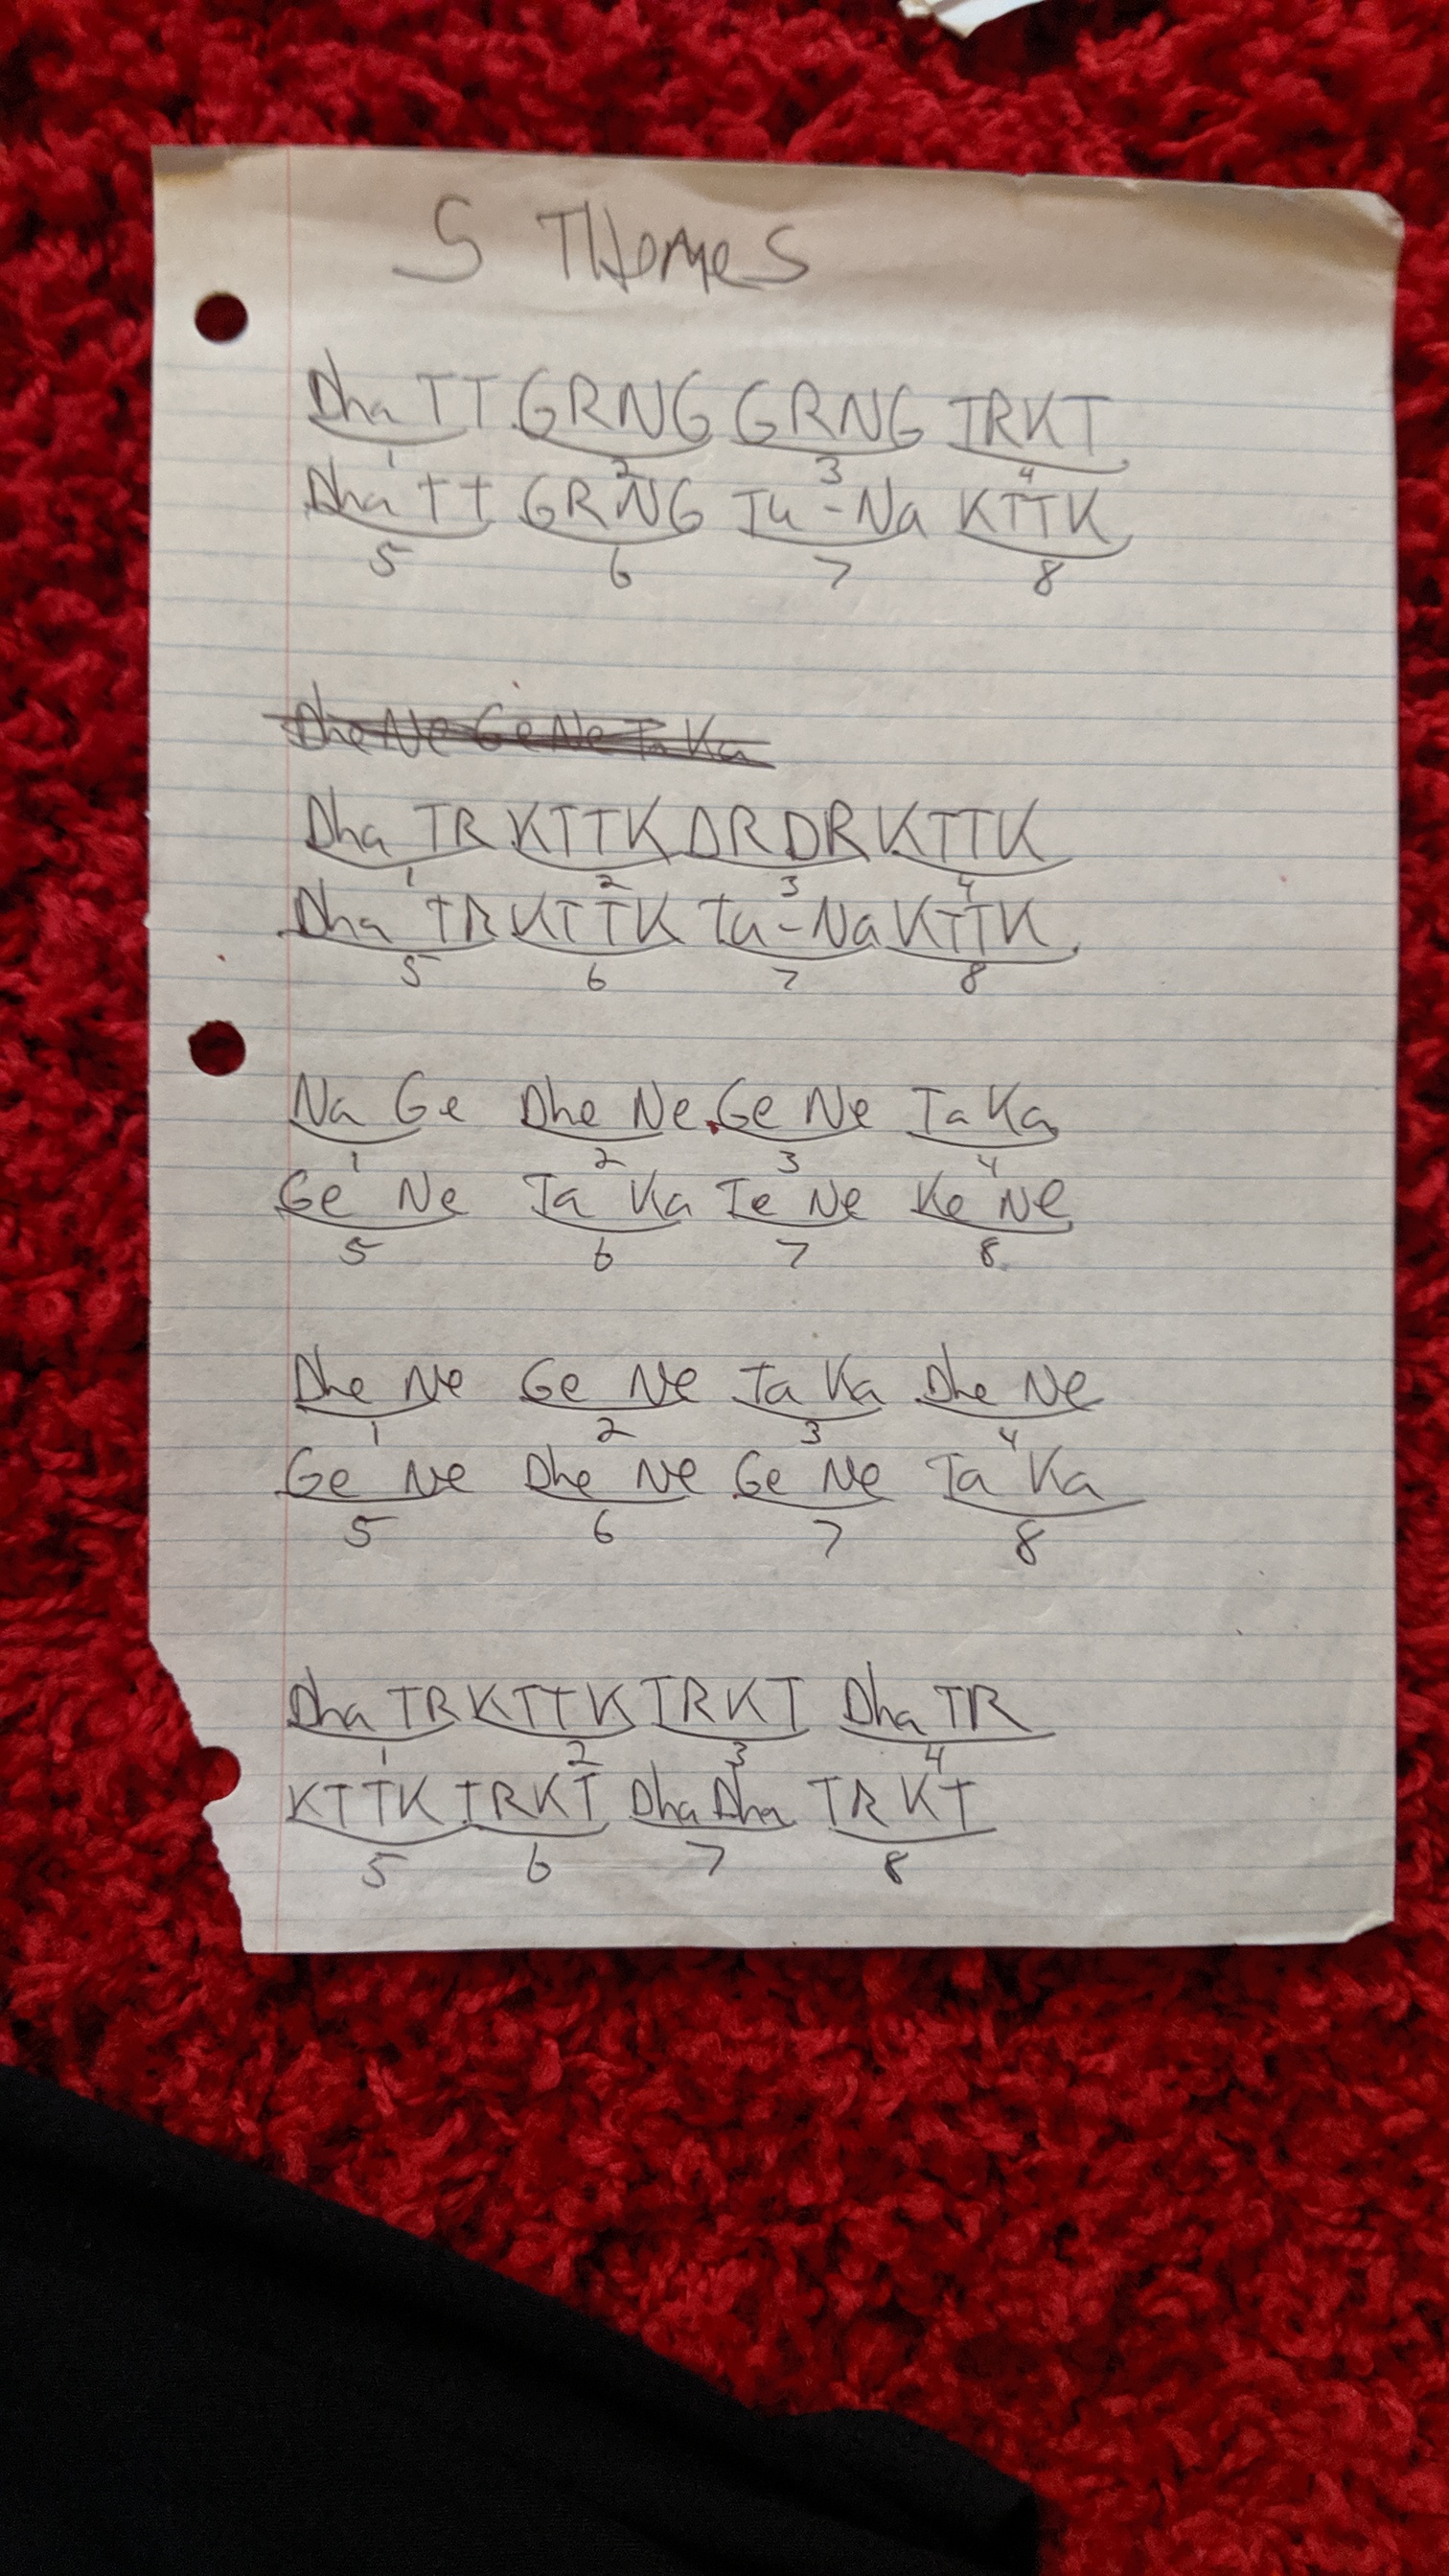 5 THemes
Dha TT GRNG GRNG TRKT
1 2 3 4
Dha TT GRNG Tu-Na KTTK
5 6 7 8
Dhe Ne Ge Ne Ta Ka
Dha TR KTTK DRDR KTTK
1 2 3 4
Dha TR KTTK Tu-Na KTTK
5 6 7 8
Na Ge Dhe Ne Ge Ne Ta Ka
1 2 3 4
Ge Ne Ta Ka Te Ne Ke Ne
5 6 7 8
Dhe Ne Ge Ne Ta Ka Dhe Ne
1 2 3 4
Ge Ne Dhe Ne Ge Ne Ta Ka
5 6 7 8
Dha TR KTTK TRKT Dha TR
1 2 3 4
KTTK TRKT Dha Dha TRKT
5 6 7 8